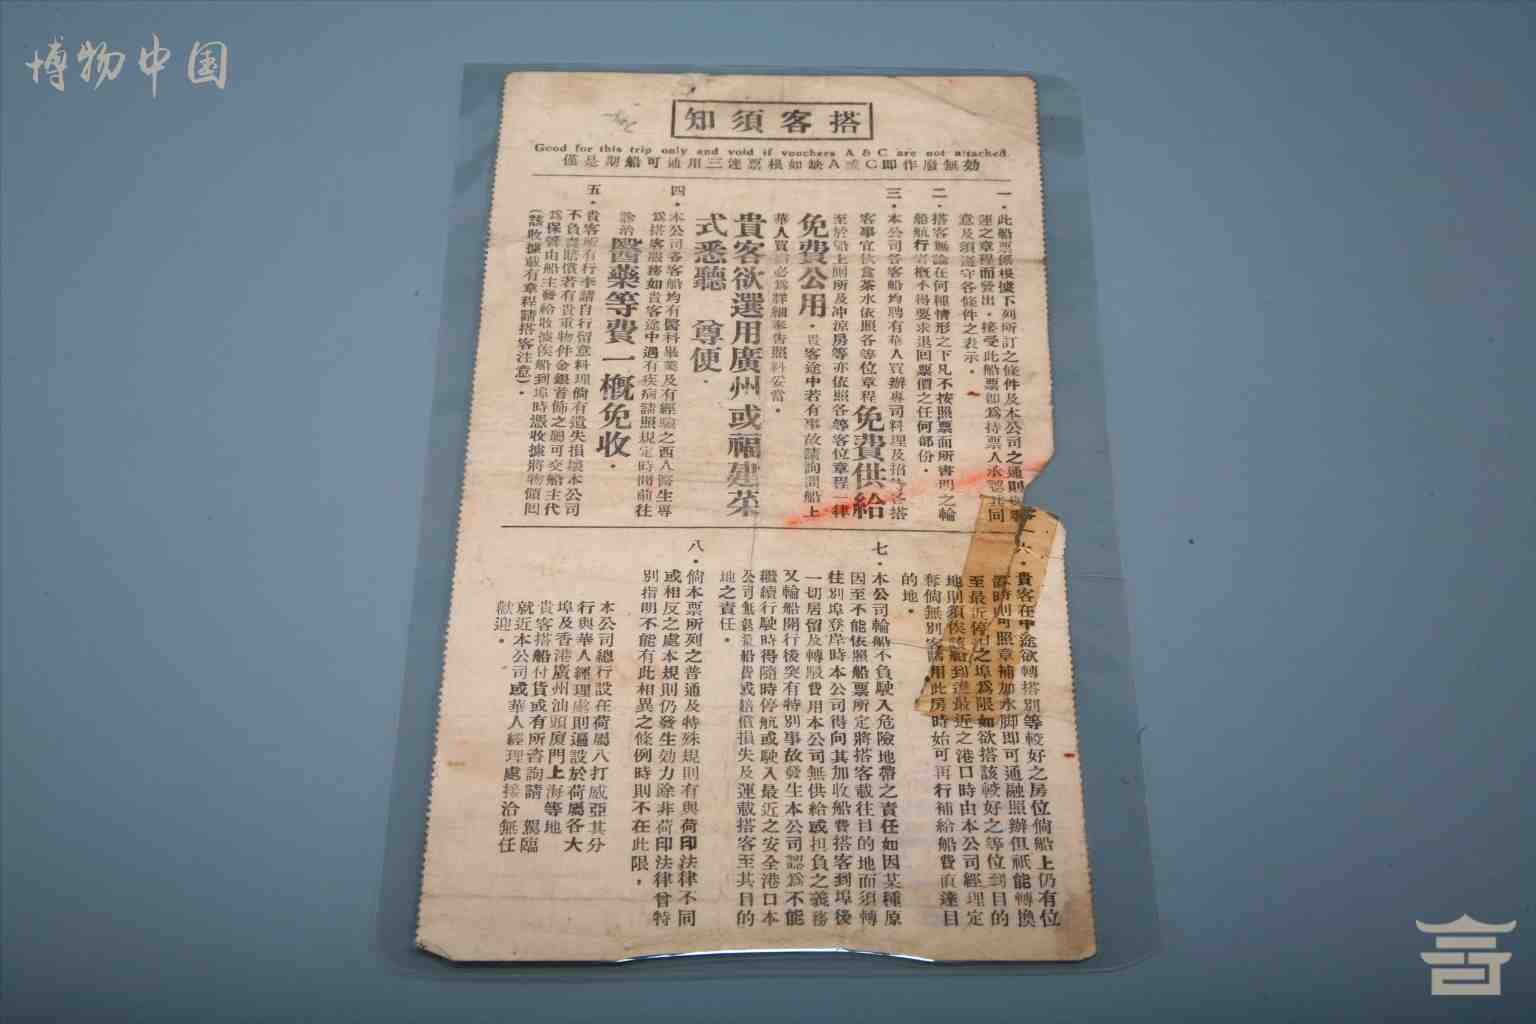 博物中国
搭客須知
Good for this trip only and void if vouchers A & C are not attached.
僅是期船可通用三連票根如缺A或C即作廢無効
一・此船票係根據下列所訂之條件及本公司之通則
運之章程而發出・接受此船票即爲持票人承認其同
意及須遵守各條件之表示・
二・搭客無論在何種情形之下凡不按照票面所書明之輪
船航行者概不得要求退回票價之任何部份・
三・本公司各客船均聘有華人買辦專司料理及招待各搭
客事宜飲食茶水依照各等位章程免費供給
至於船上厠所及冲涼房等亦依照各等客位章程一律
免費公用・貴客途中若有事故請詢問船上
華人買辦必爲詳細奉告照料妥當・
貴客欲選用廣州或福建菜
式悉聽 尊便・
四・本公司各客船均有醫科畢業及有經驗之西人醫生專
爲搭客服務如貴客途中遇有疾病請照規定時間前往
診治醫藥等費一概免收・
五・貴客所有行李請自行留意料理倘有遺失損壞本公司
不負責賠償若有貴重物件金銀首飾之屬可交船主代
爲保管由船主發給收據俟船到埠時憑收據將物領回
(該收據載有章程請搭客注意)・
六・貴客在中途欲轉搭別等較好之房位倘船上仍有位
置時則可照章補加水脚即可通融照辦但祇能轉換
至最近停泊之埠爲限如欲搭該較好之等位到目的
地則須俟該船到達最近之港口時由本公司經理定
奪倘無別客需用此房時始可再行補給船費直達目
的地・
七・本公司輪船不負駛入危險地帶之責任如因某種原
因至不能依照船票所定將搭客載往目的地而須轉
往別埠登岸時本公司得向其加收船費搭客到埠後
一切居留及轉駁費用本公司無供給或担負之義務
又輪船開行後突有特別事故發生本公司認爲不能
繼續行駛時得隨時停航或駛入最近之安全港口本
公司無退還船費或賠償損失及運載搭客至其目的
地之責任・
八・倘本票所列之普通及特殊規則有與荷印法律不同
或相反之處本規則仍發生効力除非荷印法律曾特
別指明不能有此相異之條例時則不在此限・
本公司總行設在荷屬八打威亞其分
行與華人經理處則遍設於荷屬各大
埠及香港廣州汕頭廈門上海等地
貴客搭船付貨或有所咨詢請 駕臨
就近本公司或華人經理處接洽無任
歡迎・